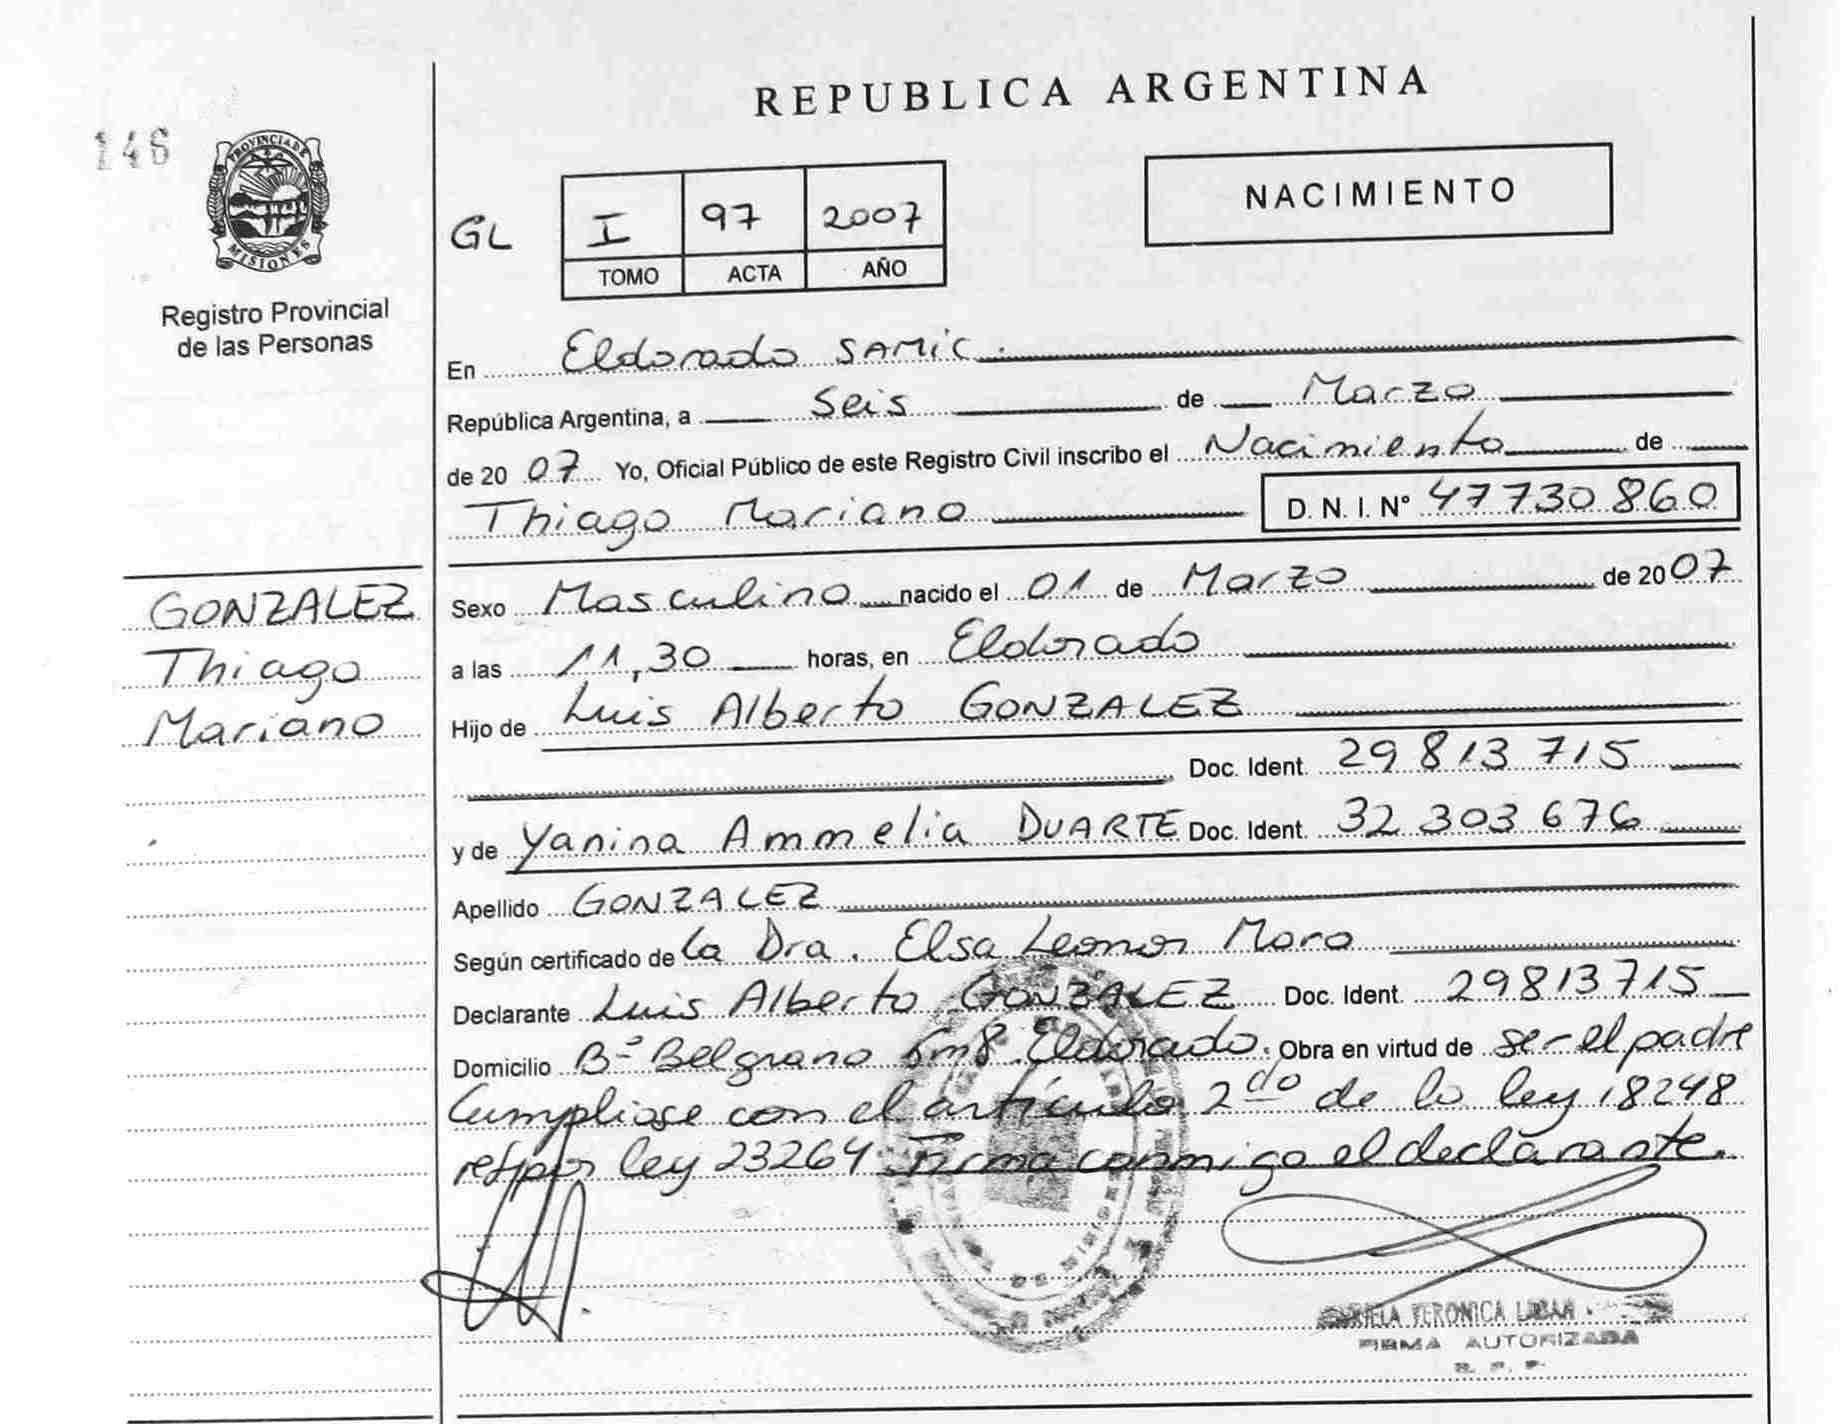 REPUBLICA ARGENTINA
146
PROVINCIA DE
MISIONES
Registro Provincial
de las Personas
GL
I 97 2007
TOMO ACTA AÑO
NACIMIENTO
En Eldorado SAMIC.
República Argentina, a Seis de Marzo
de 2007 Yo, Oficial Público de este Registro Civil inscribo el Nacimiento de
Thiago Mariano D. N. I. N° 47730860
GONZALEZ
Thiago
Mariano
Sexo Masculino nacido el 01 de Marzo de 2007
a las 11,30 horas, en Eldorado
Hijo de Luis Alberto GONZALEZ
Doc. Ident. 29 813 715
y de Yanina Ammelia DUARTE Doc. Ident. 32 303 676
Apellido GONZALEZ
Según certificado de la Dra. Elsa Leonor Moro
Declarante Luis Alberto GONZALEZ Doc. Ident. 29813715
Domicilio B° Belgrano Km8 Eldorado. Obra en virtud de ser el padre
Cumpliose con el artículo 2do de la ley 18248
ref por ley 23264 Firma conmigo el declarante.
VERONICA
FIRMA AUTORIZADA